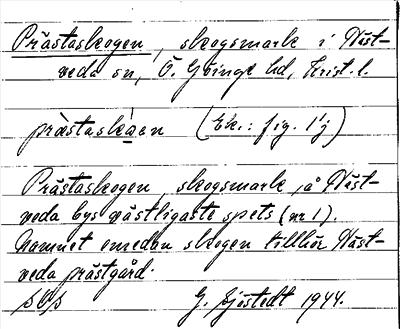 Prästaskogen, skogsmark i Näst-
veda sn, Ö. Göinge hd, Krist. l.
prästaskåen (Ek.: fig. 1j)
Prästaskogen, skogsmark, å Näst-
veda bys västligaste spets (nr 1).
Namnet emedan skogen tillhör Näst-
veda prästgård.
G. Sjöstedt 1944.